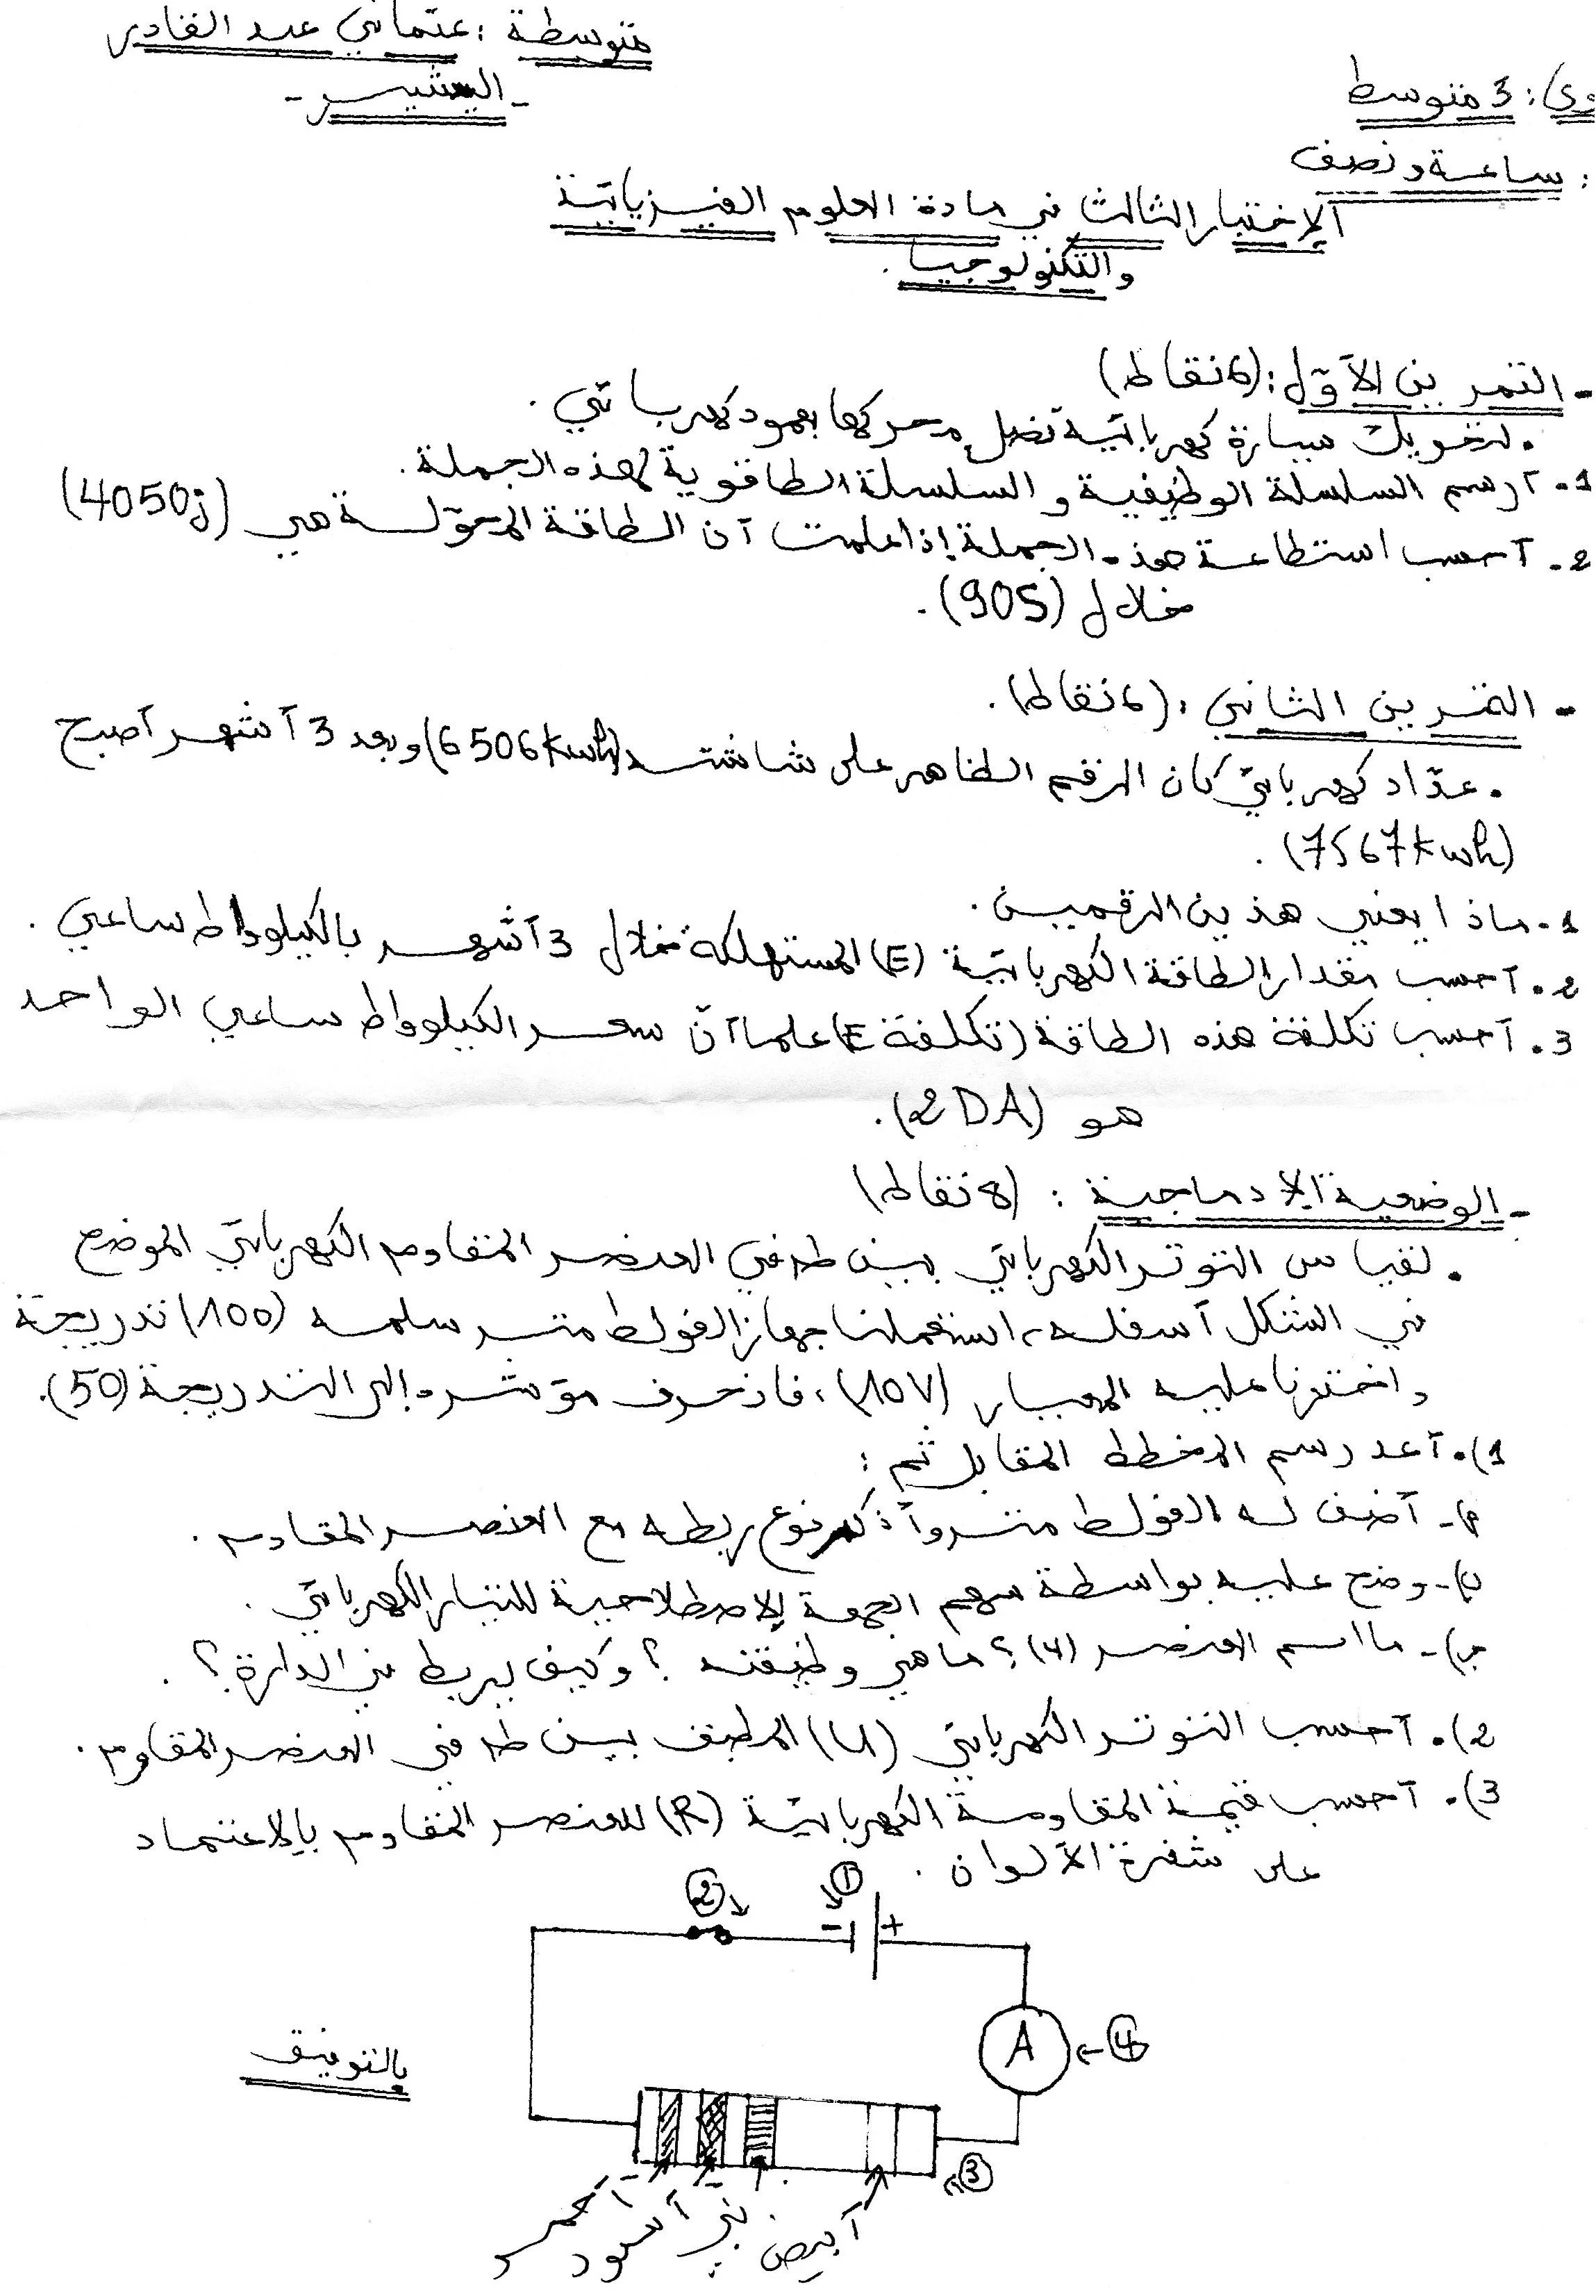 متوسطة : عثماني عبد القادر
- البشير -
وى : 3 متوسط
: ساعة و نصف
الإختبار الثالث في مادة العلوم الفيزيائية
والتكنولوجيا .
- التمرين الأول : (6 نقاط)
• لتحويك سيارة كهربائية نصل محركها بعمود كهربائي .
1 . أرسم السلسلة الوظيفية و السلسلة الطاقوية لهذه الجملة .
2 . أحسب استطاعة هذه الجملة إذا علمت أن الطاقة المحولة هي (4050j)
خلال (90S) .
- التمرين الثاني : (6 نقاط) .
• عدّاد كهربائي كان الرقم الظاهر على شاشته (6506kwh) و بعد 3 أشهر أصبح
(7567kwh) .
1 . ماذا يعني هذين الرقمين .
2 . أحسب مقدار الطاقة الكهربائية (E) المستهلكة خلال 3 أشهر بالكيلوواط ساعي .
3 . أحسب تكلفة هذه الطاقة (تكلفة E) علما أنّ سعر الكيلوواط ساعي الواحد
هو (2DA) .
- الوضعية الإدماجية : (8 نقاط)
• لقياس التوتر الكهربائي بين طرفي العنصر المقاوم الكهربائي الموضح
في الشكل أسفله، استعملنا جهاز الفولط متر سلمه (100) تدريجة
واخترنا عليه العيار (10V)، فانحرف مؤشره إلى التدريجة (50).
1) . أعد رسم المخطط المقابل ثم :
أ) - أضف له الفولط متر وأذكر نوع ربطه مع العنصر المقاوم .
ب) - وضح عليه بواسطة سهم الجهة الإصطلاحية للتيار الكهربائي .
ج) - ما اسم العنصر (4) ؟ ما هي وظيفته ؟ و كيف يربط في الدارة ؟ .
2) . أحسب التوتر الكهربائي (U) المطبق بين طرفي العنصر المقاوم .
3) . أحسب قيمة المقاومة الكهربائية (R) للعنصر المقاوم بالإعتماد
على شفرة الألوان .
② ①
- +
A ④
③
أحمر أسود بني أبيض
بالتوفيق